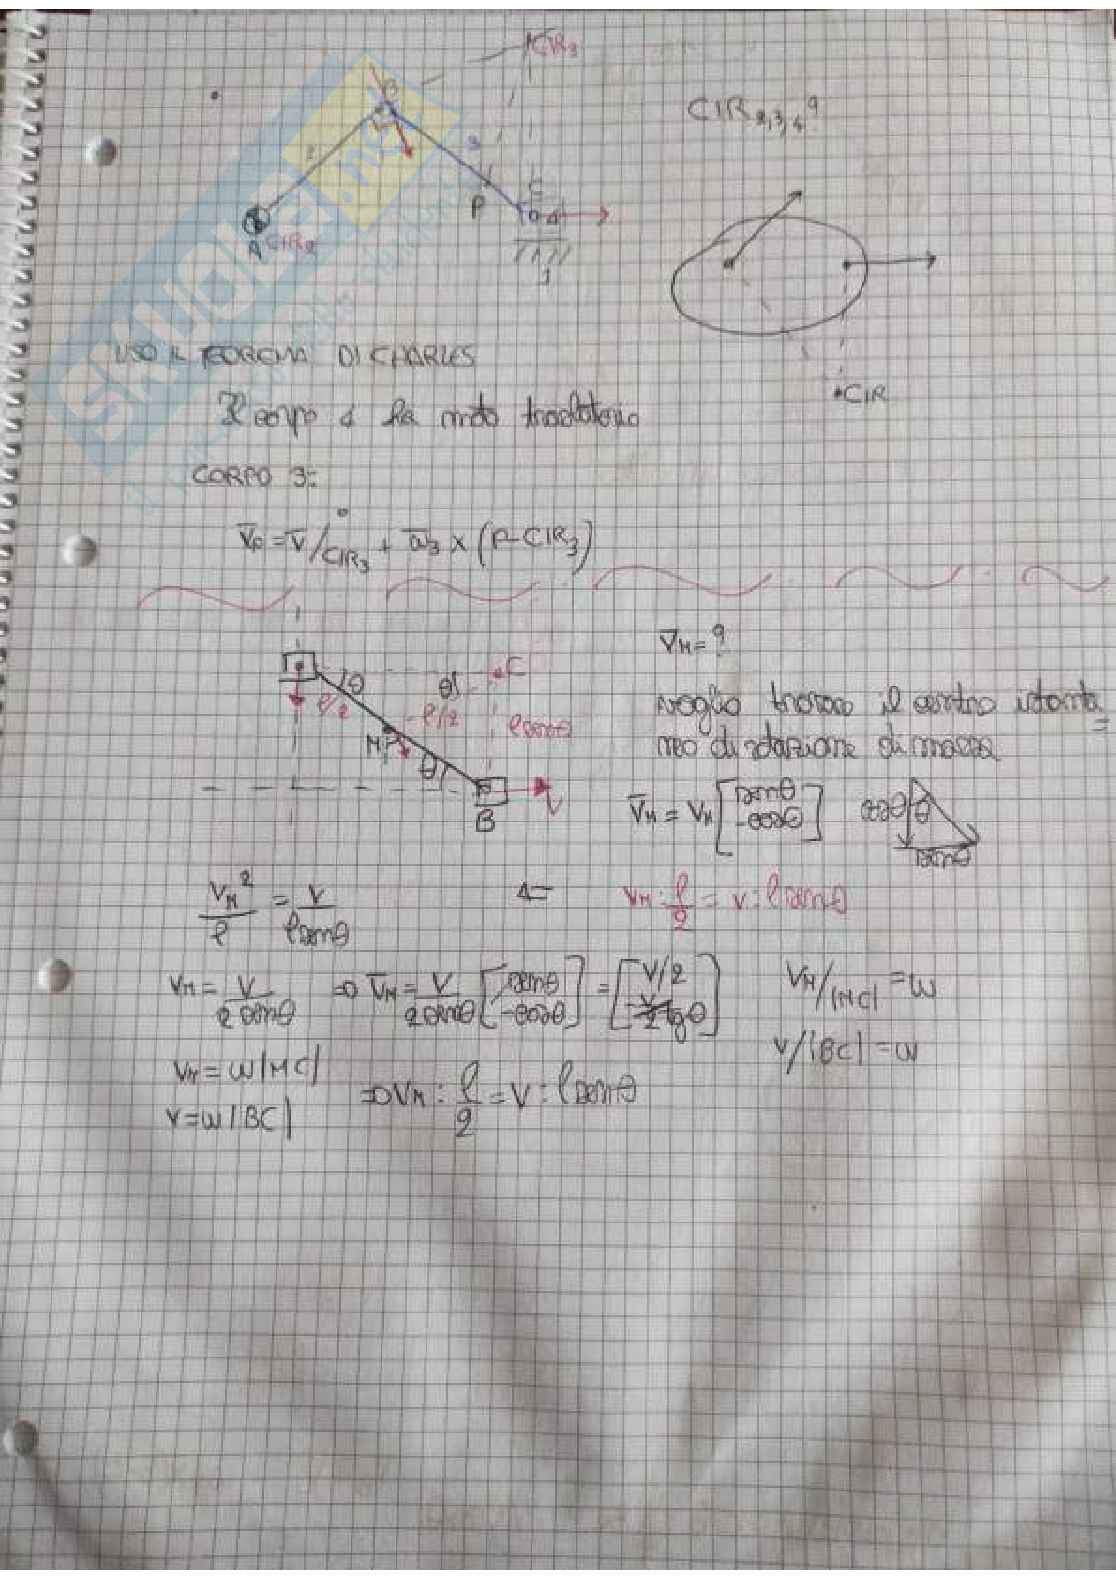 CIR₃
CIR₂,₃,₄?
B
2
3
P
C
4
A CIR₂
1
USO IL TEOREMA DI CHARLES
CIR
Il corpo 4 ha moto traslatorio
CORPO 3:
V̄p = V̄/CIR₃ + ω̄₃ × (P-CIR₃)
V̄M = ?
θ
θ
C
l/2
l/2
l senθ
voglio trovare il centro istanta=
neo di rotazione di
M
θ
V
B
V̄M = VM [senθ -cosθ]
cosθ
θ
senθ
VM 2 / l = V / l senθ
⇐
VM : l/2 = V : l senθ
VM = V / 2 senθ ⇒ V̄M = V / 2 senθ [senθ -cosθ] = [V/2 -V/2 tgθ]
VM/|MC| = ω
V/|BC| = ω
VM = ω|MC|
V = ω|BC|
⇒ VM : l/2 = V : l senθ
SKUOLA.net